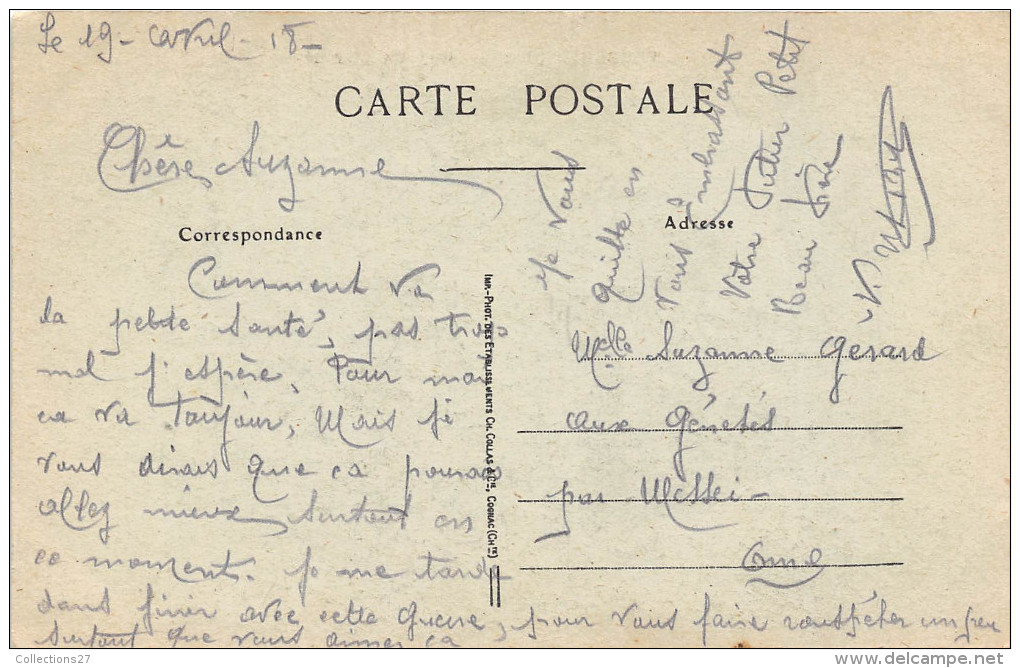 Le 19 - avril - 18 -
CARTE POSTALE
Chère Suzanne
Correspondance
Comment va
la petite santé, pas trop
mal j'espère, Pour moi
ca va toujour, Mais je
vous dirais que ca pourais
allez mieux surtout en
ce moment. Je me tarde
dans finir avec cette guerre, pour vous faire rouspéter un peu
surtout que vous aimer ca
IMP.-PHOT. DES ETABLISSEMENTS CH. COLLAS & CIE, COGNAC (CHTE)
Je vous
quitte en
vous
Embrassant
Votre Futur Petit
Beau Frère
V.
Adresse
Melle Suzanne Gérard
aux Génetés
par Messei -
Orne
Collections27
http://www.delcampe.net